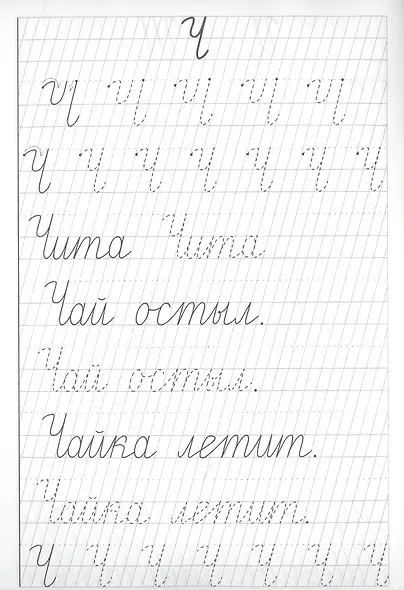 Ч
Ч Ч Ч Ч Ч Ч Ч
Чита Чита
Чай остыл.
Чай остыл.
Чайка летит.
Чайка летит.
Ч Ч Ч Ч Ч Ч Ч